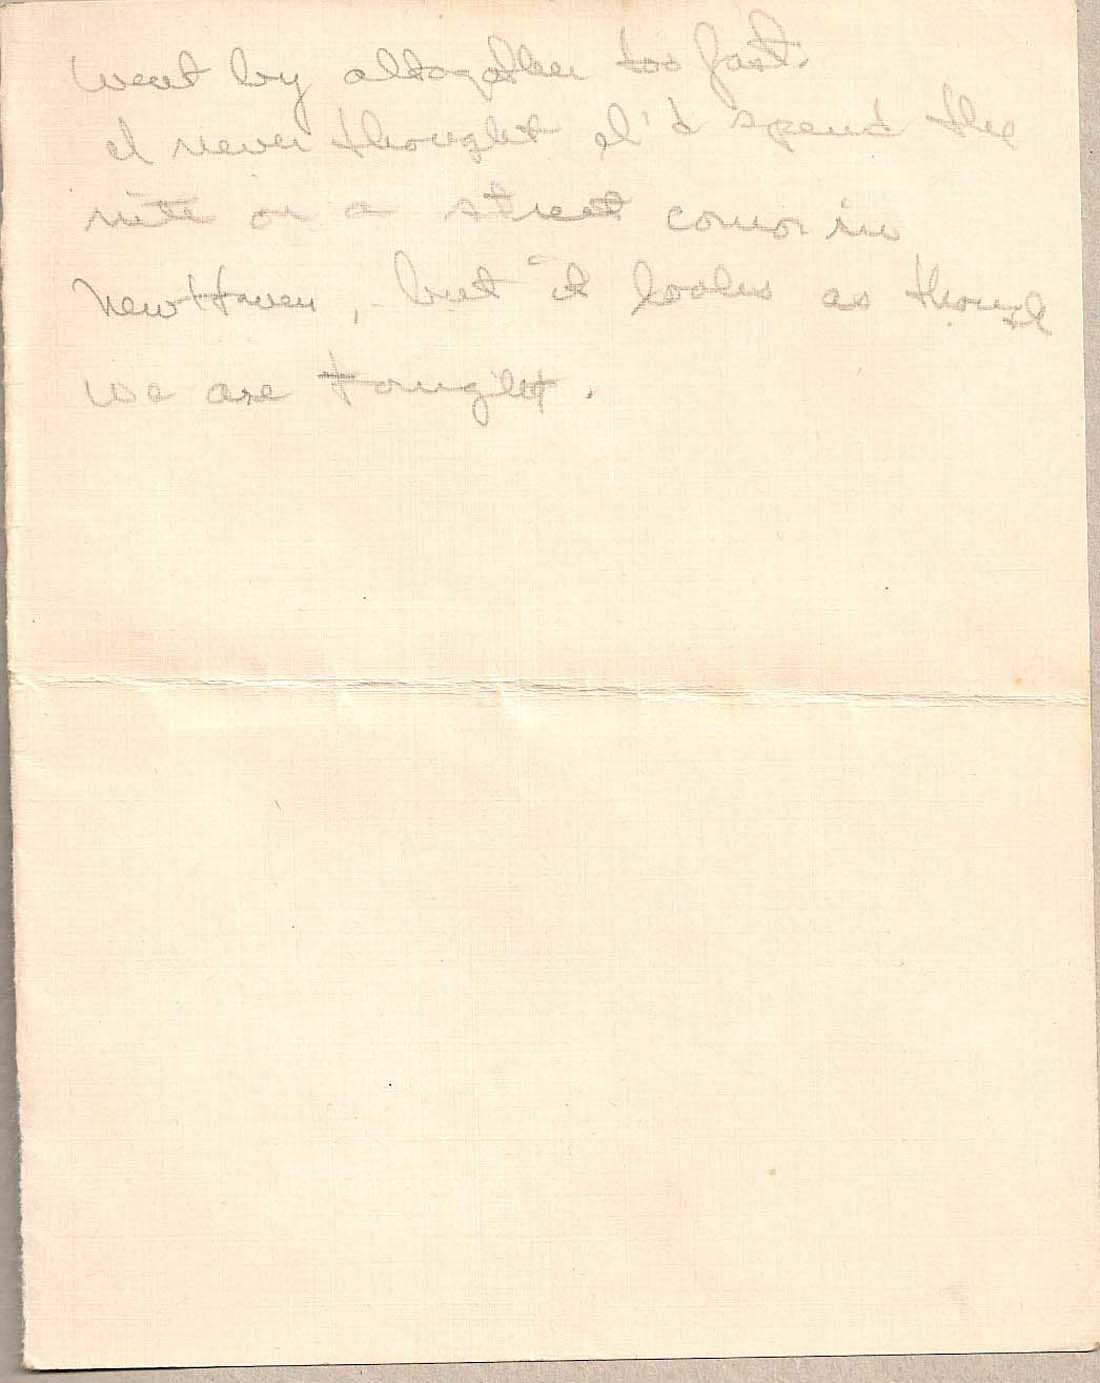 went by altogether too fast.
I never thought I'd spend the
nite on a street corner in
New Haven, but it looks as though
we are tonight.